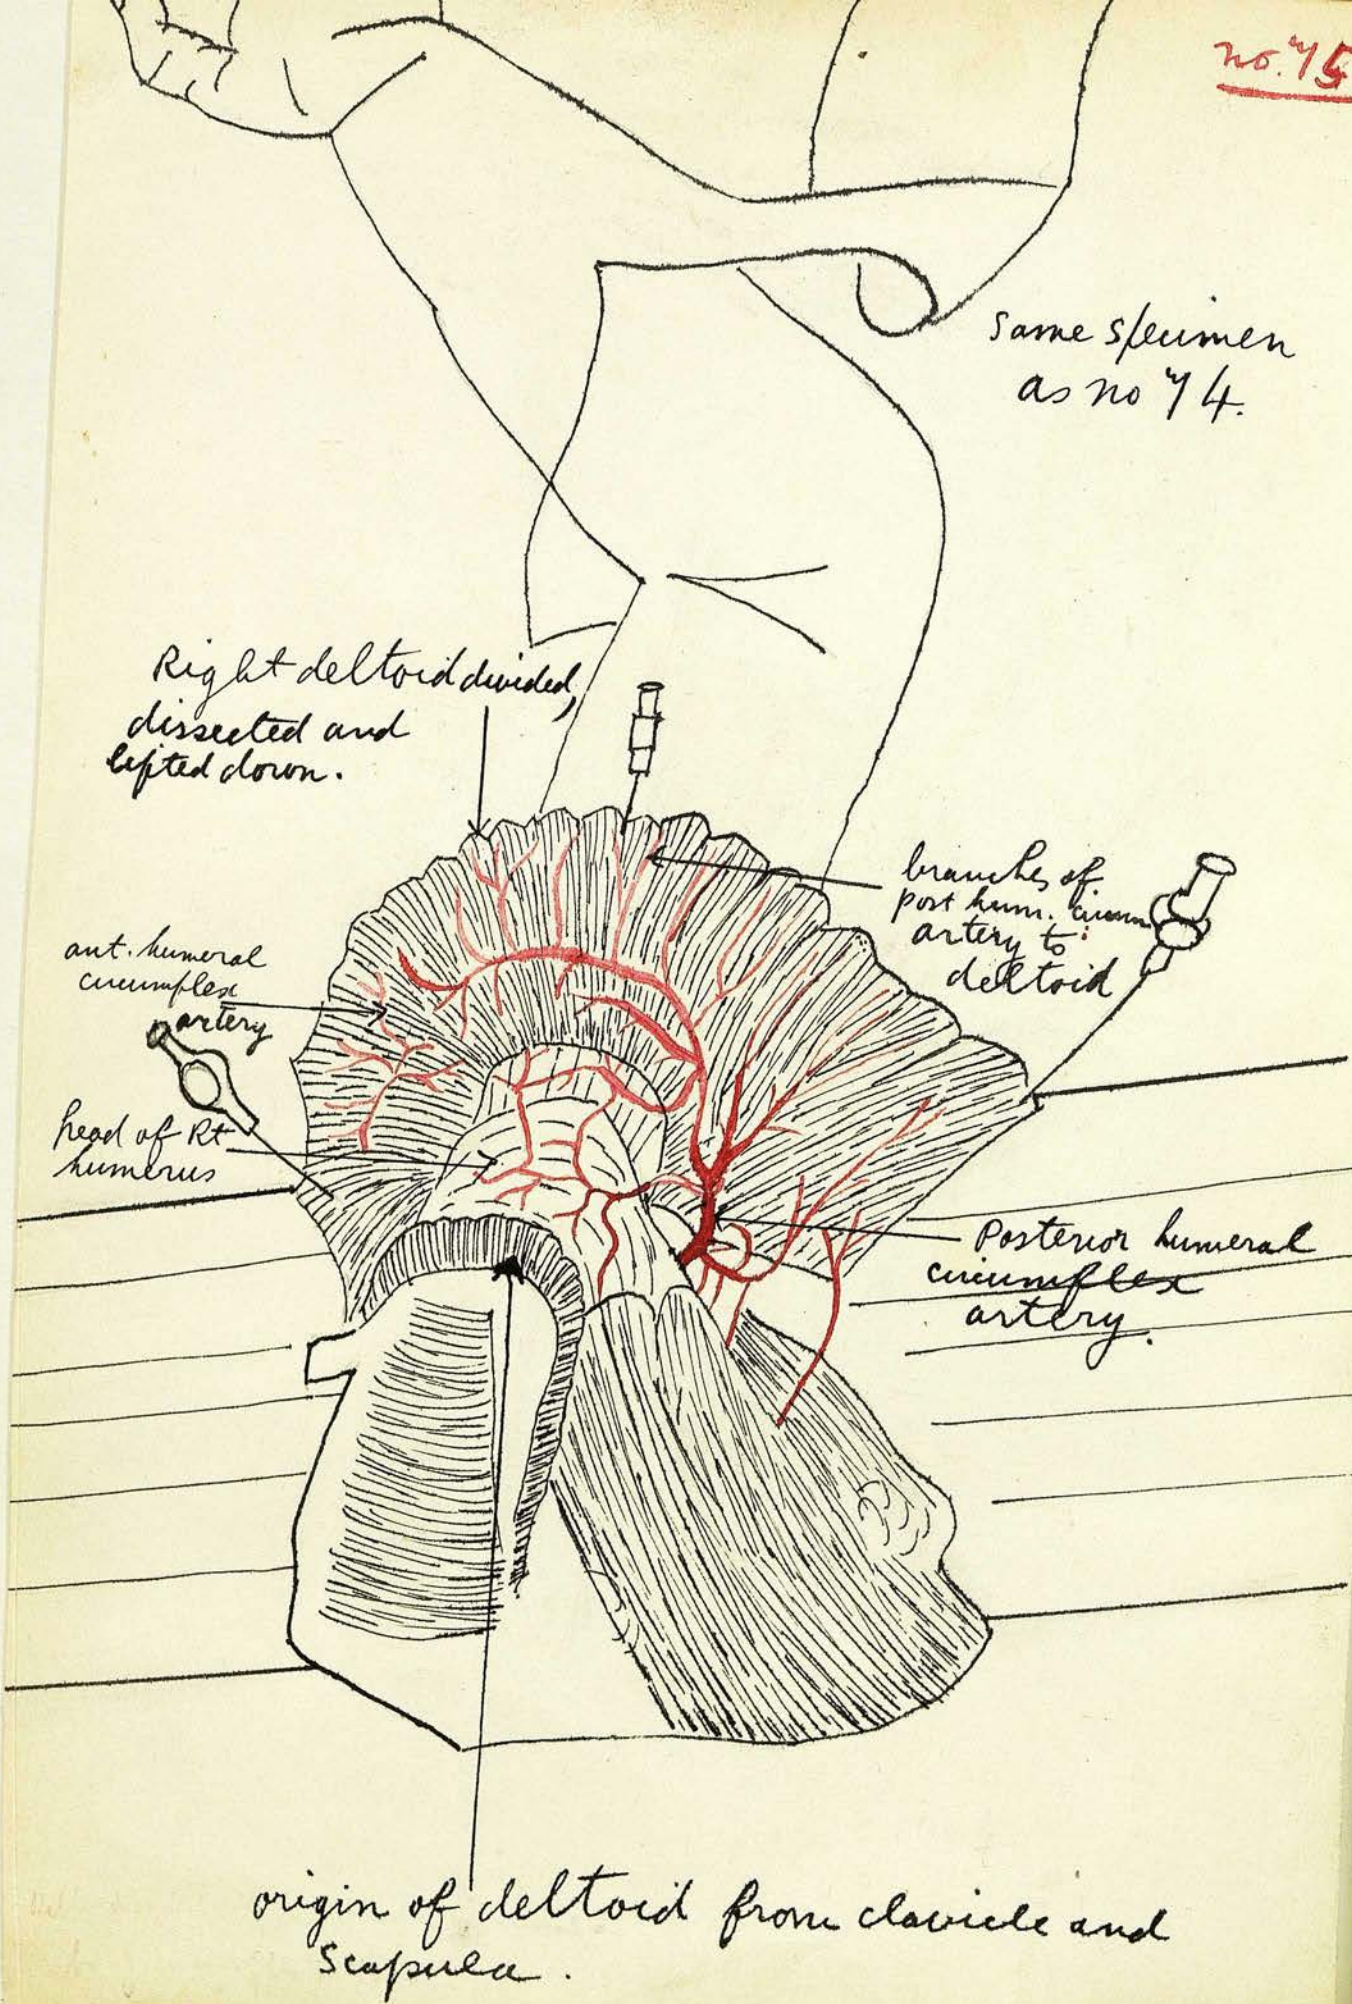 no. 75
Same specimen
as no 74.
Right deltoid divided,
dissected and
lifted down.
branches of
post hum. circum
artery to
deltoid
ant. humeral
circumflex
artery
head of Rt
humerus
Posterior humeral
circumflex
artery.
origin of deltoid from clavicle and
Scapula.